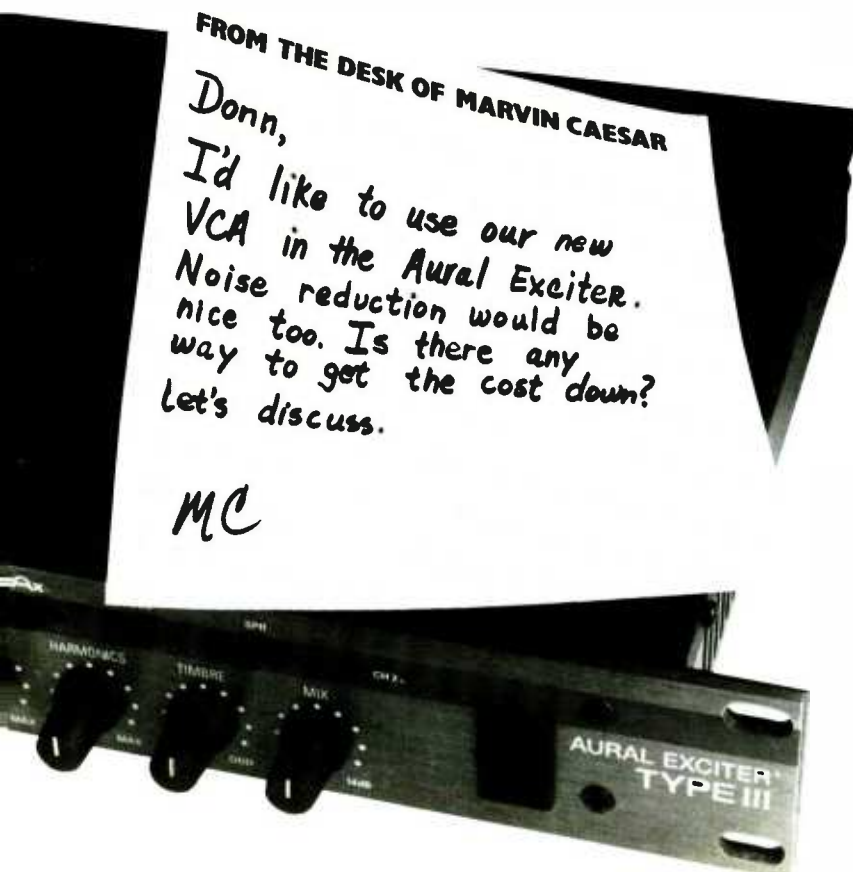 FROM THE DESK OF MARVIN CAESAR
Donn,
I'd like to use our new
VCA in the Aural Exciter.
Noise reduction would be
nice too. Is there any
way to get the cost down?
Let's discuss.
MC
SPR
HARMONICS
TIMBRE
CH 2
MIX
MAX
MAX
AURAL EXCITER
TYPE III